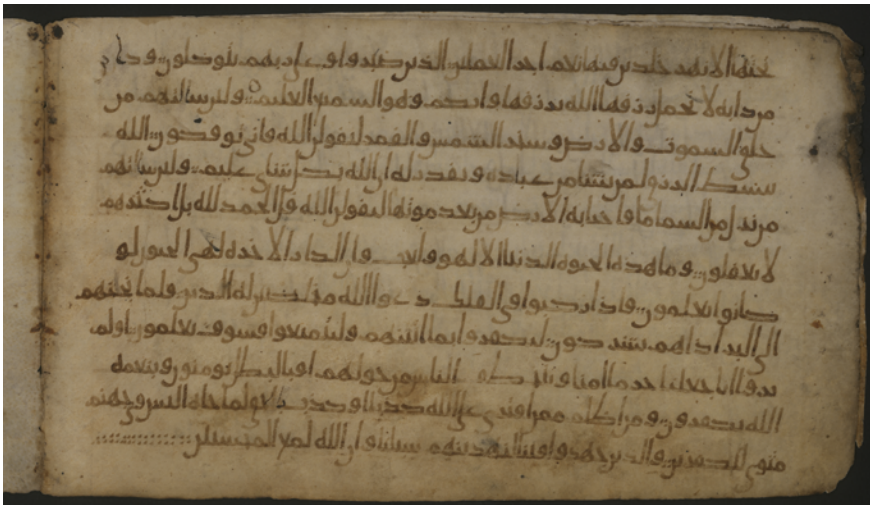 تحتها الانهر خلدين فيها نعم اجر العملين الذين صبروا وعلى ربهم يتوكلون وكاين
من دابه لا تحمل رزقها الله يرزقها واياكم وهو السميع العليم ولئن سالتهم من
خلق السموت والارض وسخر الشمس والقمر ليقولن الله فانى يوفكون الله
يبسط الرزق لمن يشا من عباده ويقدر له ان الله بكل شى عليم ولئن سالتهم
من نزل من السما ما فاحيا به الارض من بعد موتها ليقولن الله قل الحمد لله بل اكثرهم
لا يعقلون وما هذه الحيوه الدنيا الا لهو ولعب وان الدار الاخره لهى الحيون لو
كانوا يعلمون فاذا ركبوا فى الفلك دعوا الله مخلصين له الدين فلما نجيهم
الى البر اذا هم يشركون ليكفروا بما اتينهم وليتمتعوا فسوف يعلمون اولم
يروا انا جعلنا حرما امنا ويتخطف الناس من حولهم افبالبطل يومنون وبنعمه
الله يكفرون ومن اظلم ممن افترى على الله كذبا او كذب بالحق لما جاه اليس فى جهنم
مثوى للكفرين والذين جهدوا فينا لنهدينهم سبلنا وان الله لمع المحسنين